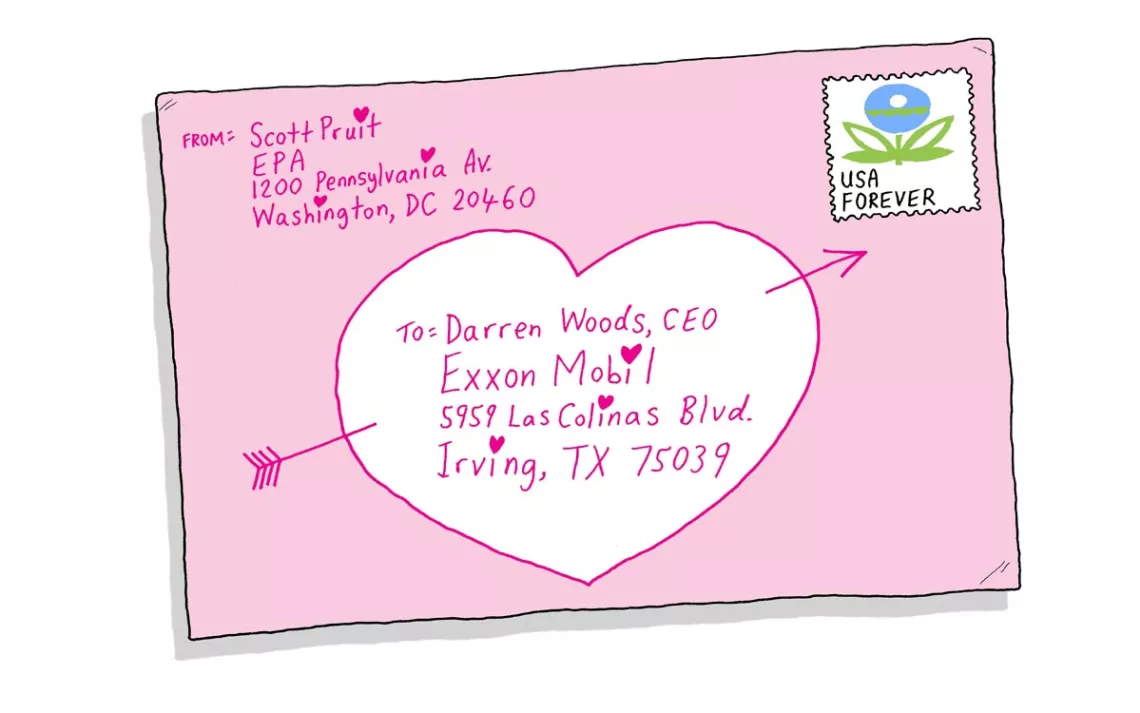 FROM= Scott Pruit
EPA
1200 Pennsylvania Av.
Washington, DC 20460
USA
FOREVER
TO= Darren Woods, CEO
Exxon Mobil
5959 Las Colinas Blvd.
Irving, TX 75039